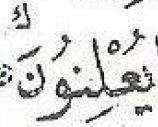 يُعْلِنُونَ ك